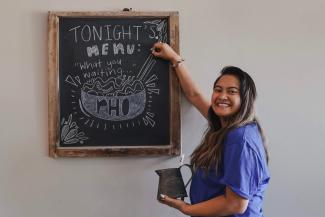 TONIGHT'S
MENU:
"What you
waiting...
PHO